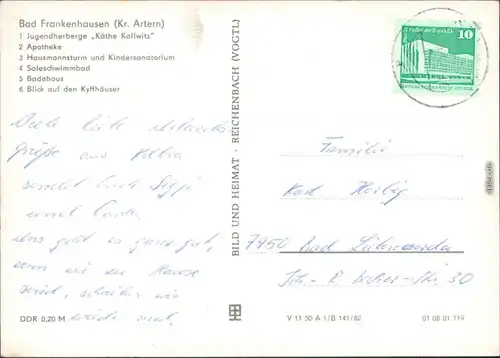 Bad Frankenhausen (Kr. Artern)
1 Jugendherberge „Käthe Kollwitz"
2 Apotheke
3 Hausmannsturm und Kindersanatorium
4 Soleschwimmbad
5 Badehaus
6 Blick auf den Kyffhäuser
Viele liebe Urlaubs-
grüße aus Kelbra
sendet Euch Siggi
und
Uns geht es ganz gut,
wenn wir zu Hause
sind, schreiben wir
wieder mal.
DDR 0,20 M
BILD UND HEIMAT · REICHENBACH (VOGTL)
10
Familie
Karl
7950 Bad Liebenwerda
30
V 11 50 A 1/B 141/82
01 08 01 119